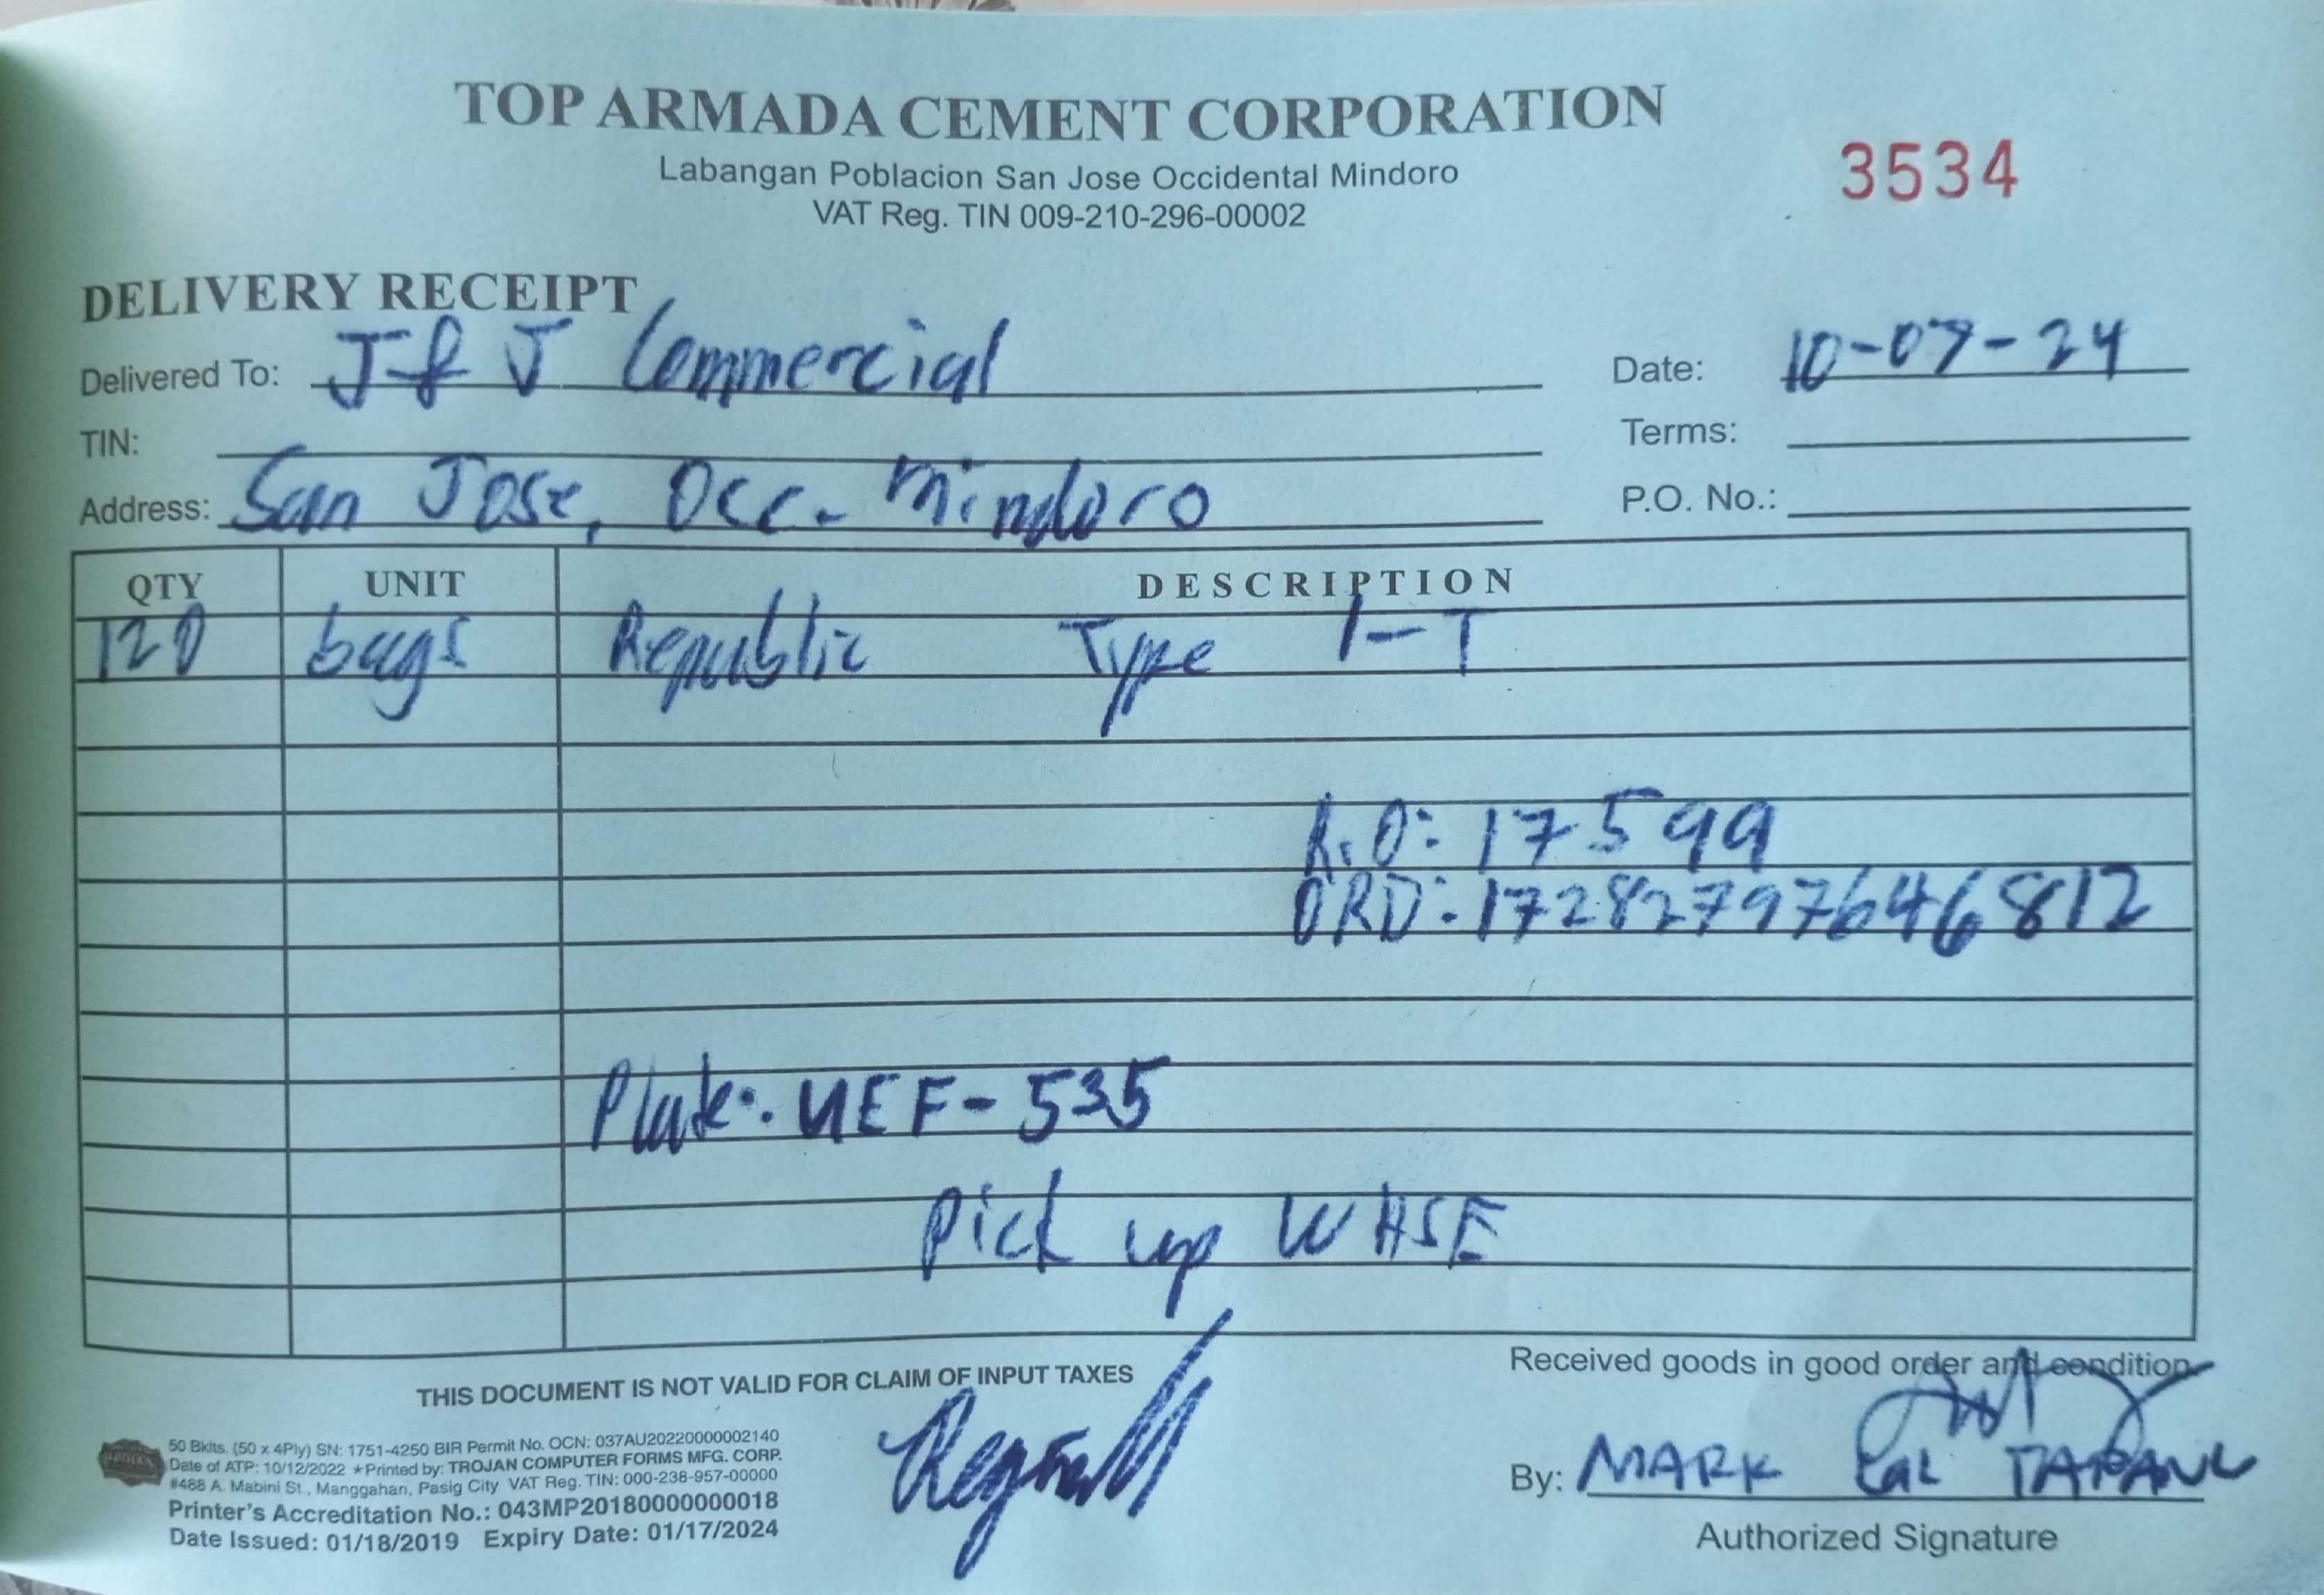 TOP ARMADA CEMENT CORPORATION
Labangan Poblacion San Jose Occidental Mindoro
VAT Reg. TIN 009-210-296-00002
3534
DELIVERY RECEIPT
Delivered To: J & J Commercial Date: 10-07-24
TIN: Terms:
Address: San Jose, Occ. Mindoro P.O. No.:
QTY UNIT DESCRIPTION
120 bags Republic Type 1-T
A.O: 17599
ORD: 17282797646812
Plate: UEF-535
Pick up WHSE
THIS DOCUMENT IS NOT VALID FOR CLAIM OF INPUT TAXES
Received goods in good order and condition
50 Bklts. (50 x 4Ply) SN: 1751-4250 BIR Permit No. OCN: 037AU20220000002140
Date of ATP: 10/12/2022 ★Printed by: TROJAN COMPUTER FORMS MFG. CORP.
#488 A. Mabini St., Manggahan, Pasig City VAT Reg. TIN: 000-238-957-00000
Printer's Accreditation No.: 043MP20180000000018
Date Issued: 01/18/2019 Expiry Date: 01/17/2024
By: MARK
Authorized Signature